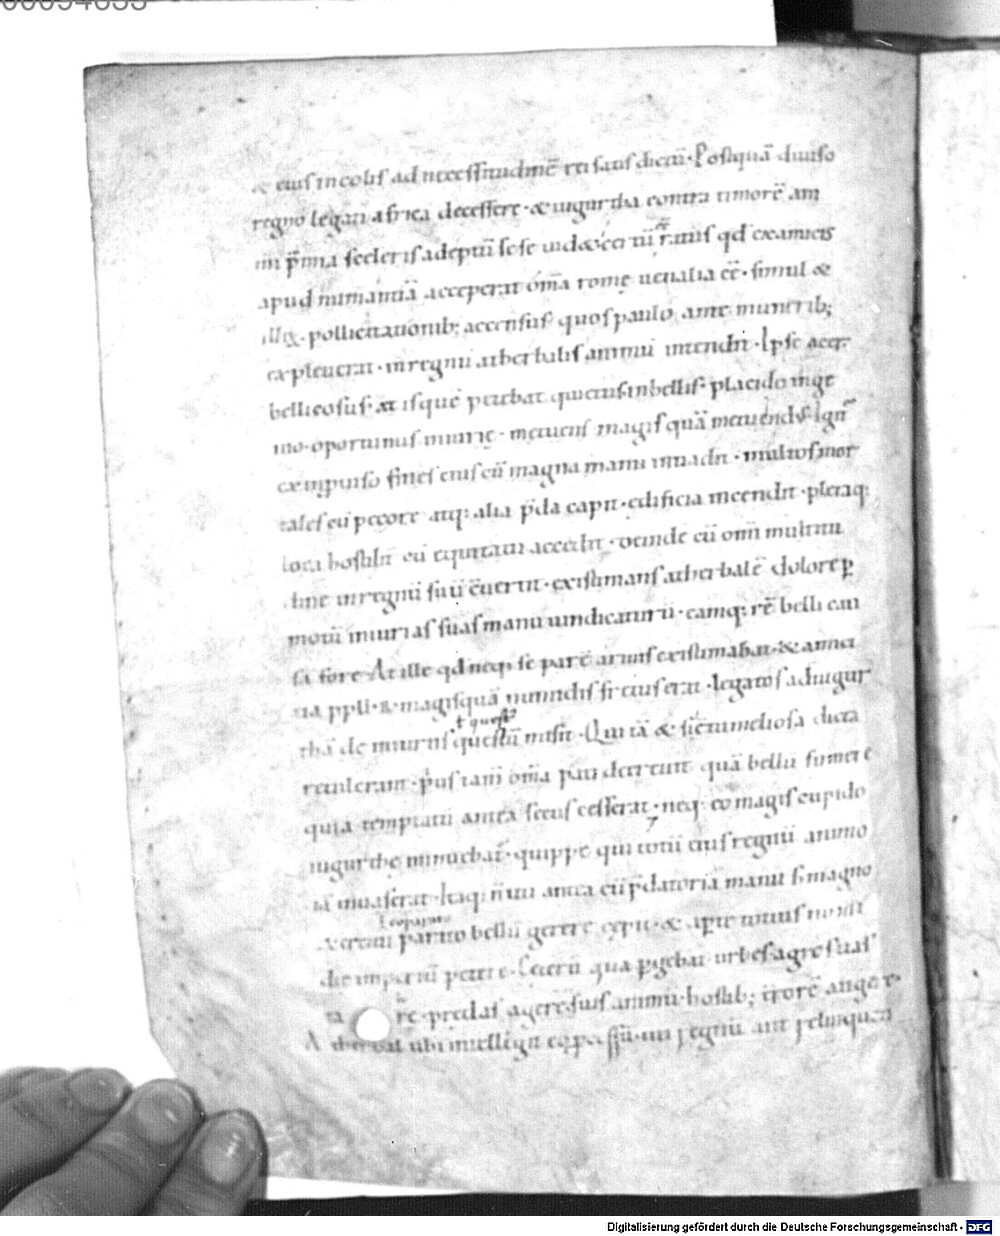 & eius incolis ad necessitudinē rei satis dictū. Postquā diuiso
regno legati africa decessere. & iugurtha contra timorē ani
mi p̄mia sceleris adeptū sese uidet certū ratus qd̄ ex amicis
apud numantiā acceperat om̄a romę uenalia eē. simul &
illoꝝ pollicitationib; accensus quos paulo ante munerib;
expleuerat. in regnū atherbalis animū intendit. Ipse acer
bellicosus. at is quē petebat quietus inbellis. placido inge
nio. oportunus iniurię. metuens magis quā metuendus. Igit̄
ex inpuiso fines eius cū magna manu inuadit. multos mor
tales cū pecore atq; alia p̄da capit. edificia incendit. pleraq;
loca hostilit̄ cū equitatu accedit. deinde cū omī multitu
dine in regnū suū cūertit. existimans atherbalē dolore p
motū iniurias suas manu uindicaturū. eamq; rē belli cau
sā fore. At ille qd neq; se parē armis existimabat. & amici
tia ppli r. magis quā numidis fretus erat. legatos ad iugur
thā de iniuriis questū misit. Qui tā & si cōtumeliosa dicta
retulerant. prius tam̄ om̄a pati decreuit quā bellū sumere
quia temptatū antea secus cesserat. neq; eo magis cupido
iugurthę minuebat̄. quippe qui totū eius regnū animo
iā inuaserat. Itaq; n̄ uti antea cū p̄datoria manu s; magno
exercitu parato bellū gerere cępit. & apte totius numi
die imperiū petere. Ceterū qua pgebat urbes agros uas
ta re. predas agere. suis animū. hostib; trorē auger.
Adherbal ubi intelligit eo pcessū. uti regnū aut relinquen